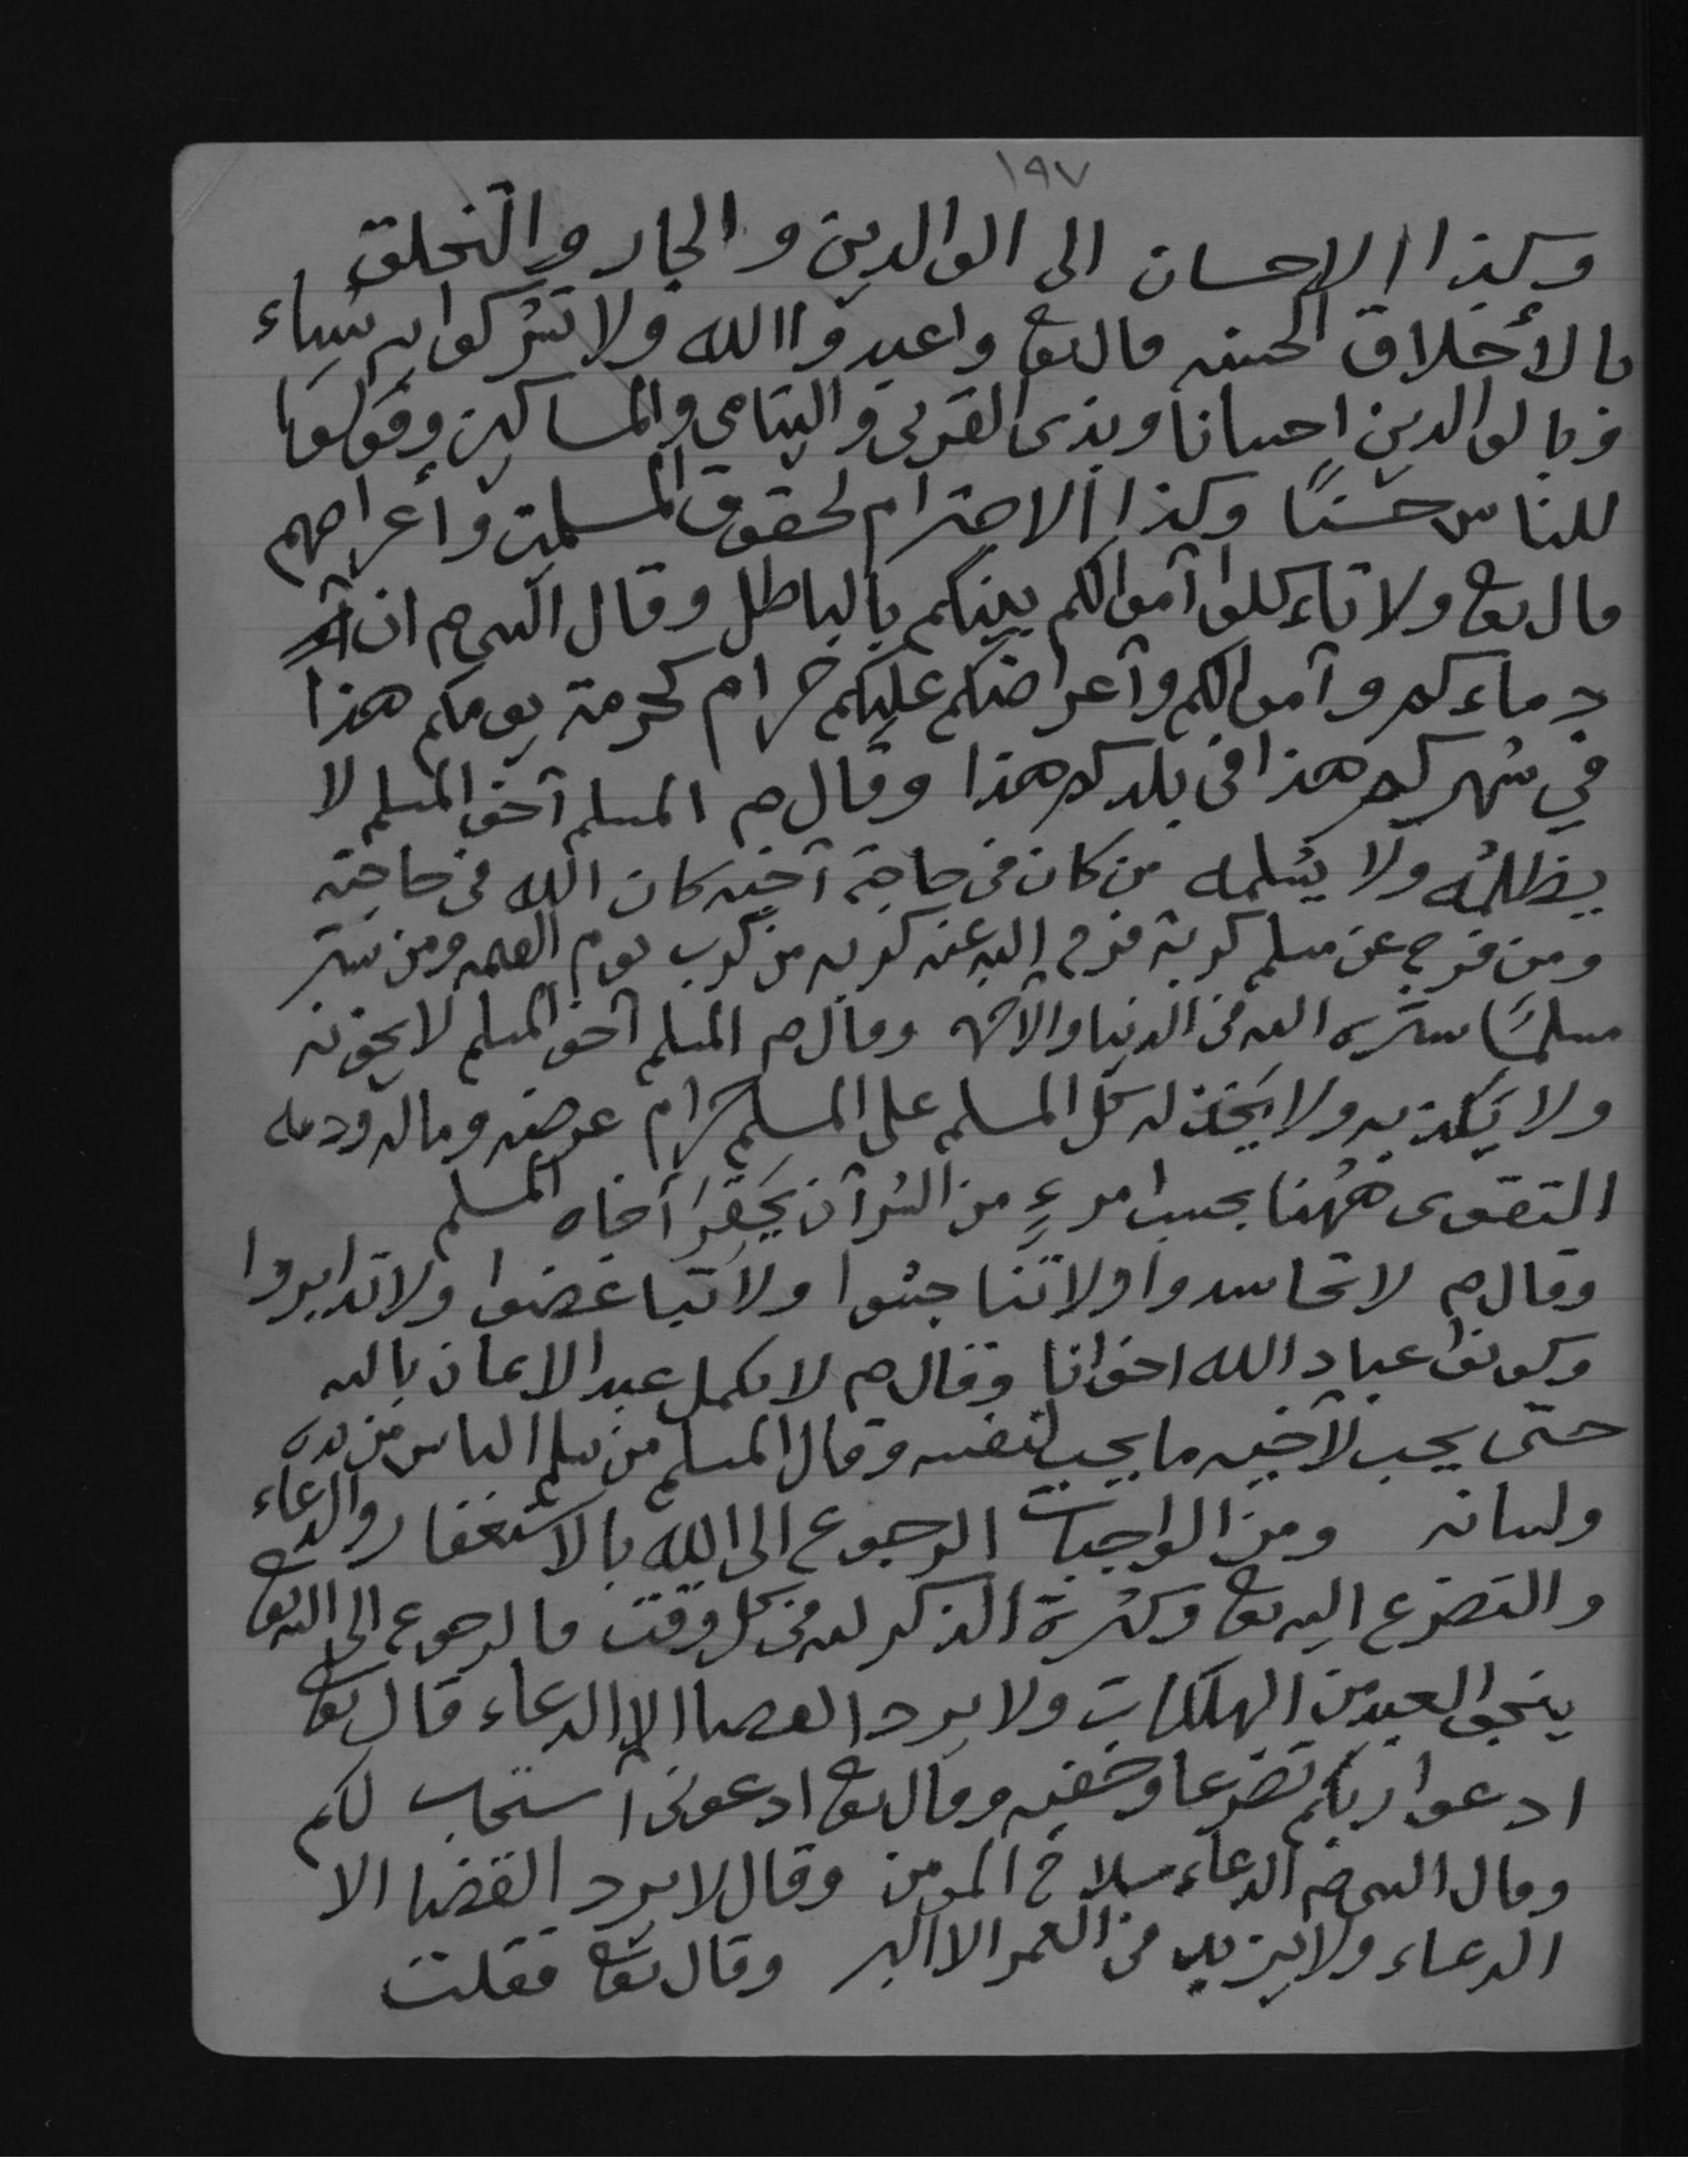 ١٩٧
وكذا الاحسان الى الوالدين والجار والتخلق
بالأخلاق الحسنه قال تعا واعبدوا الله ولا تشركوا به شياء
وبالوالدين احسانا وبذى القربى واليتامى والمساكين وقولوا
للناس حسنًا وكذا الاحترام لحقوق المسلمين وأعراضهم
قال تعا ولا تاءكلوا آموالكم بينكم بالباطل وقال النبى ص ان
دماءكم وآموالكم وآعراضكم عليكم حرام كحرمة يومكم هذا
في شهركم هذا فى بلدكم هذا وقال ص المسلم آخو المسلم لا
يظلمُه ولا يسُلمه من كان فى حاجة آخيه كان الله فى حاجته
ومن فرج عن مسلم كربة فرج الله عنه كربه من كرب يوم القيمه ومن ستر
مسلمًا ستره الله فى الدنيا والآخره وقال ص المسلم آخو المسلم لا يخونه
ولا يَكذبه ولا يَخذله كل المسلم على المسلم حرام عرضه وماله ودمه
التقوى ههُنا بحسب امرءٍ من الشر آن يَحقِرَ أخاه المسلم
وقال ص لا تحاسدوا ولا تناجشوا ولا تباغضوا ولا تدابروا
وكونوا عباد الله اخوانا وقال ص لا يكمل عبد الايمان بالله
حتى يحب لآخيه ما يحب لنفسه وقال المسلم من سلم الناس من يده
ولسانه ومن الواجبات الرجوع الى الله بالاستغفار والدعاء
والتضرع اليه تعا وكثرة الذكر لله فى كل وقت فالرجوع الى الله تعا
ينجوا العبد من الهلكات ولا يرد القضاا الا الدعاء قال تعا
ادعوا ربكم تضرعا وخفيه وقال تعا ادعونى آستجب لكم
وقال النبى ص الدعاء سلاح المومن وقال لا يرد القضا الا
الدعاء ولا يزيد فى العمر الا البر وقال تعا فقلت